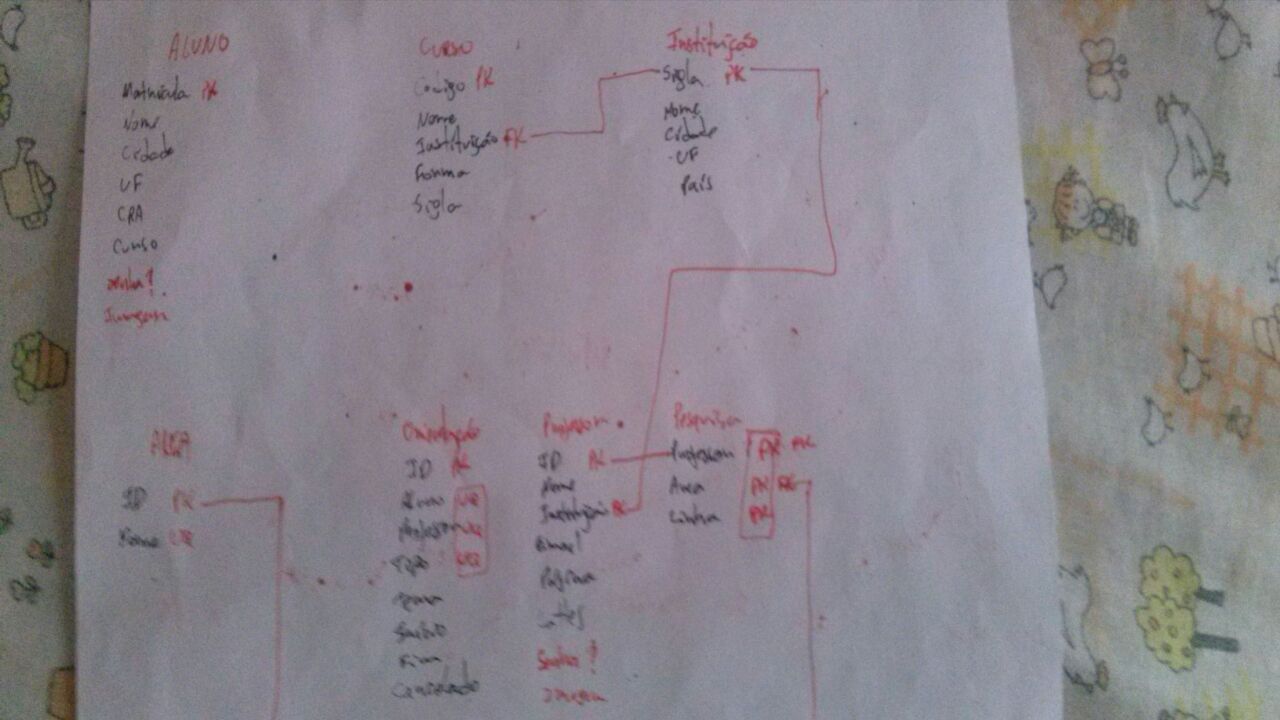 ALUNO
Matricula PK
Nome
Cidade
UF
CRA
Curso
senha?
Imagem
CURSO
Codigo PK
Nome
Instituição FK
Sigla
Instituição
Sigla PK
Nome
Cidade
UF
País
AREA
ID PK
Nome UQ
Orientação
ID PK
Aluno UQ
Professor UQ
Tipo UQ
Cancelado
Professor
ID PK
Nome
Instituição FK
Email
Página
Lattes
Senha?
Imagem
Pesquisa
Professor PK FK
Area PK FK
Linha PK